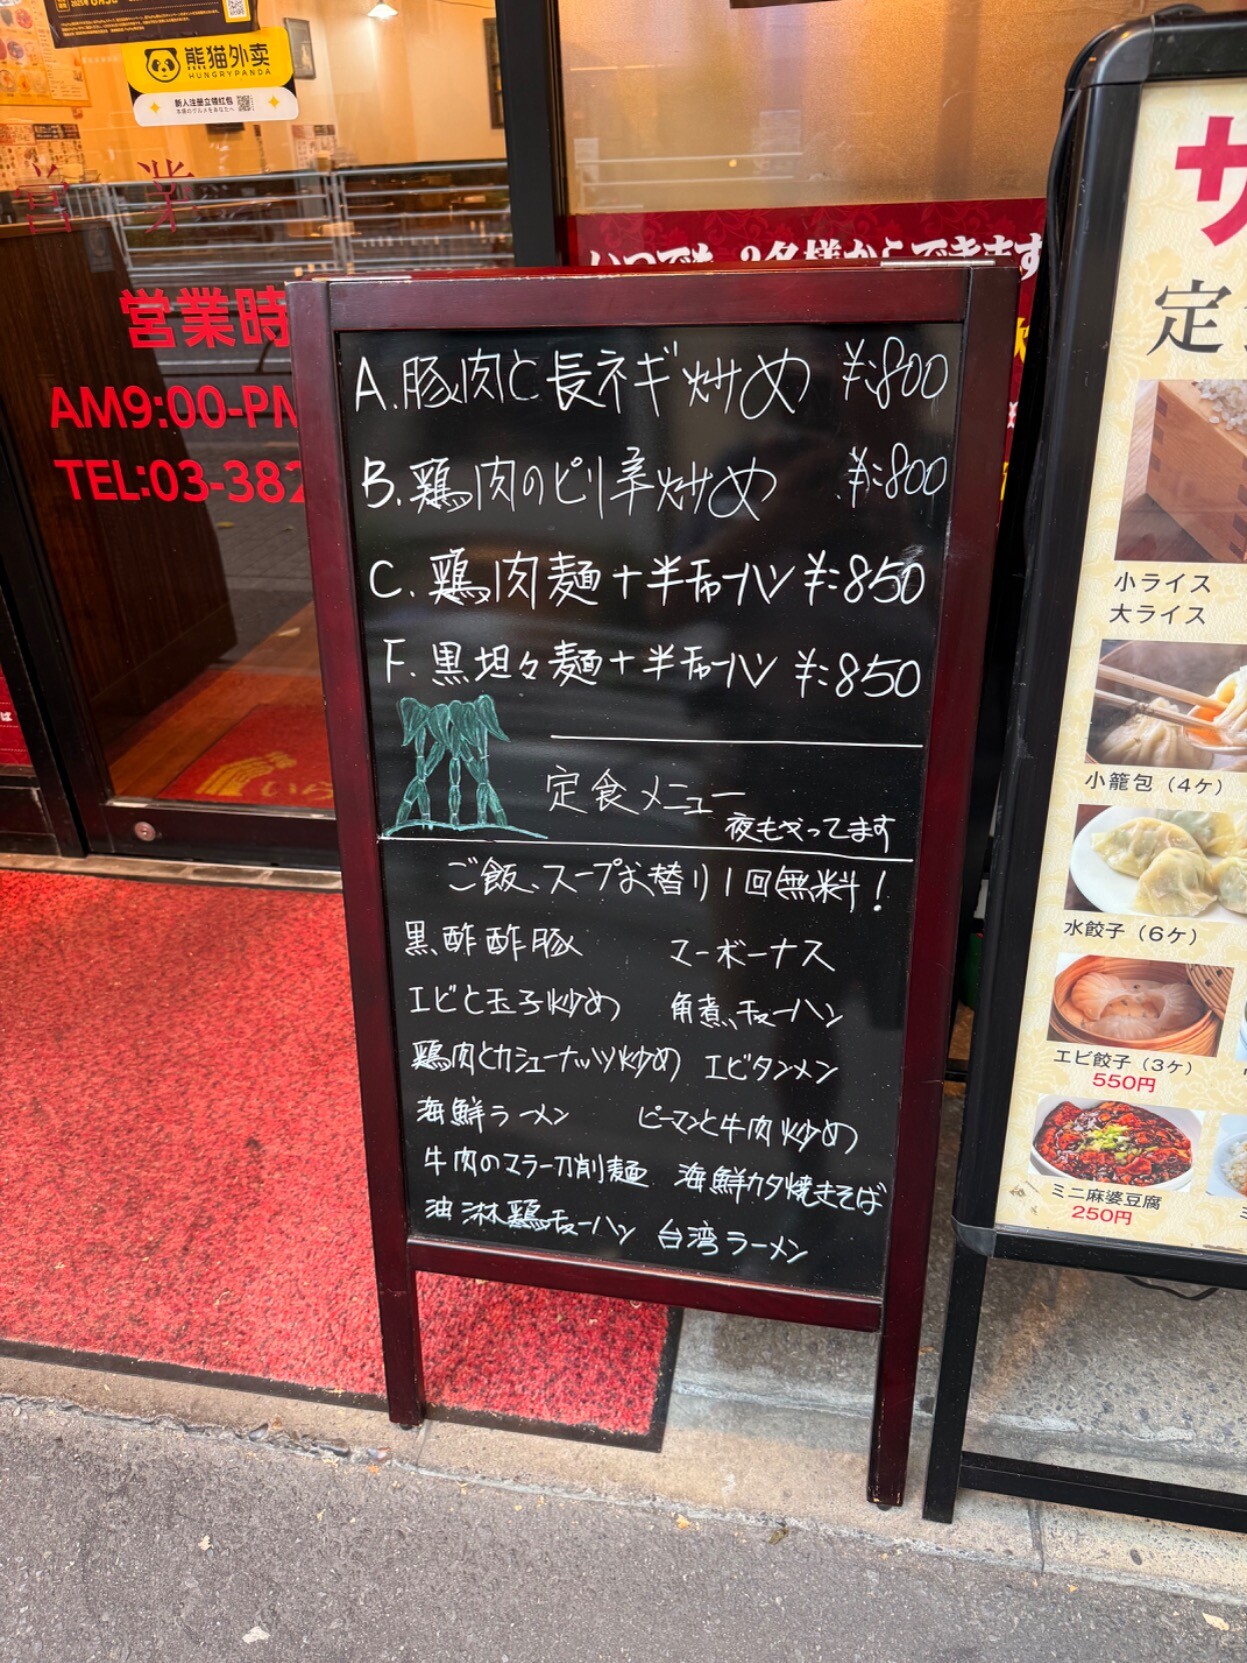 熊猫外卖
HUNGRYPANDA
新人注册立领红包
営業
営業時
AM9:00-P
TEL:03-382
いつでも 2名様からできます
A.豚肉と長ネギ炒め ¥:800
B.鶏肉のピリ辛炒め ¥:800
C.鶏肉麺+半チャーハン ¥:850
F.黒坦々麺+半チャーハン ¥:850
定食メニュー
夜もやってます
ご飯、スープお替り1回無料!
黒酢酢豚 マーボーナス
エビと玉子炒め 角煮チャーハン
鶏肉とカシューナッツ炒め エビタンメン
海鮮ラーメン ピーマンと牛肉炒め
牛肉のマラー刀削麺 海鮮カタ焼きそば
油淋鶏チャーハン 台湾ラーメン
サ
定
小ライス
大ライス
小籠包（4ケ）
水餃子（6ケ）
エビ餃子（3ケ）
550円
ミニ麻婆豆腐
250円